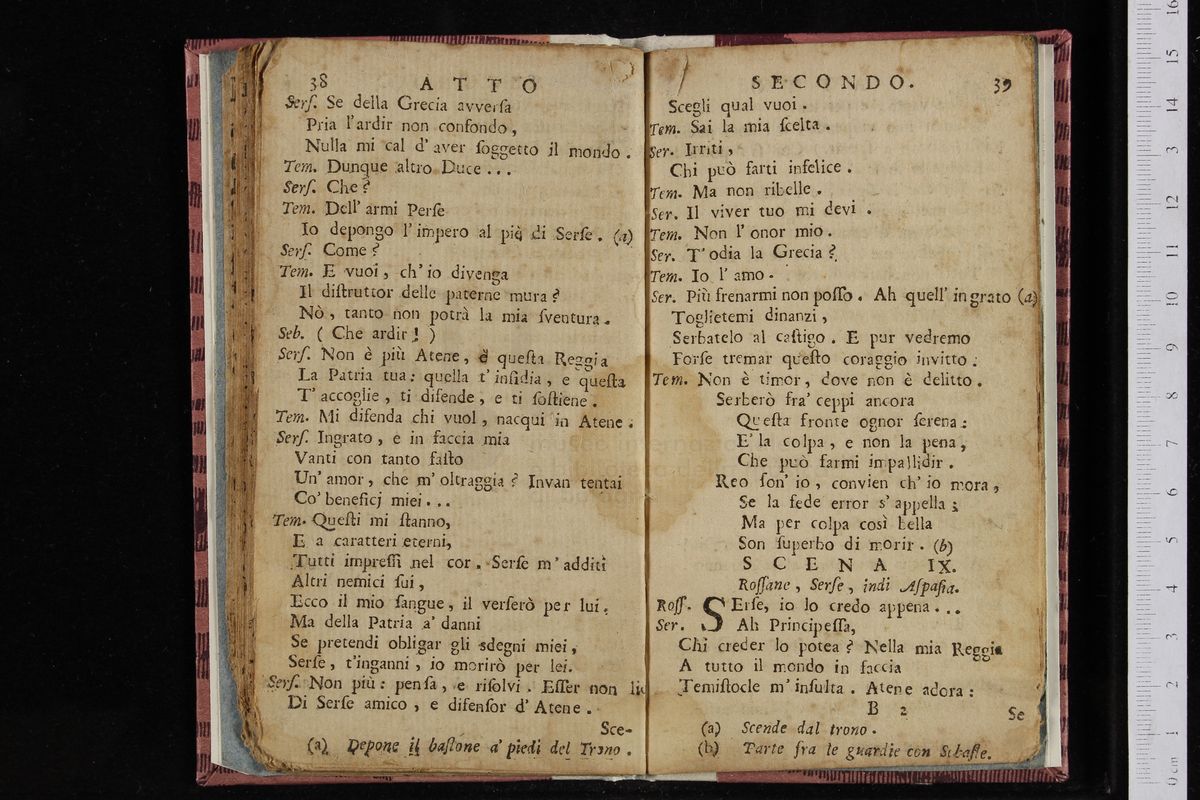 38 ATTO
Serſ. Se della Grecia avverſa
Pria l'ardir non confondo,
Nulla mi cal d'aver ſoggetto il mondo.
Tem. Dunque altro Duce...
Serſ. Che?
Tem. Dell' armi Perſe
Io depongo l'impero al piè di Serſe. (a)
Serſ. Come?
Tem. E vuoi, ch'io divenga
Il diſtruttor delle paterne mura?
Nò, tanto non potrà la mia ſventura.
Seb. ( Che ardir! )
Serſ. Non è più Atene, è queſta Reggia
La Patria tua: quella t'inſidia, e queſta
T'accoglie, ti difende, e ti ſoſtiene.
Tem. Mi difenda chi vuol, nacqui in Atene.
Serſ. Ingrato, e in faccia mia
Vanti con tanto faſto
Un'amor, che m'oltraggia? Invan tentai
Co' beneficj miei...
Tem. Queſti mi ſtanno,
E a caratteri eterni,
Tutti impreſſi nel cor. Serſe m'additi
Altri nemici ſui,
Ecco il mio ſangue, il verſerò per lui.
Ma della Patria a' danni
Se pretendi obligar gli sdegni miei,
Serſe, t'inganni, io morirò per lei.
Serſ. Non più: penſa, e riſolvi. Eſſer non lic
Di Serſe amico, e difenſor d'Atene.
Sce-
(a) Depone il baſtone a' piedi del Trono.
SECONDO. 39
Scegli qual vuoi.
Tem. Sai la mia ſcelta.
Ser. Irriti,
Chi può farti infelice.
Tem. Ma non ribelle.
Ser. Il viver tuo mi devi.
Tem. Non l'onor mio.
Ser. T'odia la Grecia?
Tem. Io l'amo.
Ser. Più frenarmi non poſſo. Ah quell'ingrato (a)
Toglietemi dinanzi,
Serbatelo al caſtigo. E pur vedremo
Forſe tremar queſto coraggio invitto:
Tem. Non è timor, dove non è delitto.
Serberò fra' ceppi ancora
Queſta fronte ognor ſerena:
E' la colpa, e non la pena,
Che può farmi impallidir.
Reo ſon' io, convien ch'io mora,
Se la fede error s'appella;
Ma per colpa così bella
Son ſuperbo di morir. (b)
SCENA IX.
Roſſane, Serſe, indi Aſpaſia.
Roſſ. SErſe, io lo credo appena...
Ser. Ah Principeſſa,
Chi creder lo potea? Nella mia Reggia
A tutto il mondo in faccia
Temiſtocle m'inſulta. Atene adora:
B 2 Se
(a) Scende dal trono.
(b) Parte fra le guardie con Sebaſte.
0 cm 1 2 3 4 5 6 7 8 9 10 11 12 3 14 15 16